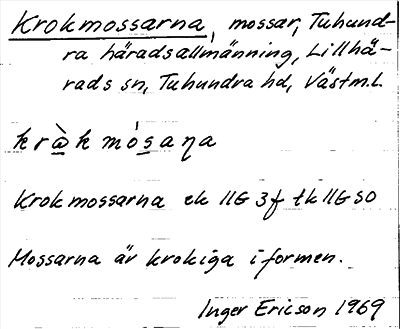 Krokmossarna, mossar, Tuhund-
ra häradsallmänning, Lillhä-
rads sn, Tuhundra hd, Västm.l.
krà̱k mós̱aṉa
Krokmossarna ek 11G 3f tk 11G SO
Mossarna är krokiga i formen.
Inger Ericson 1969